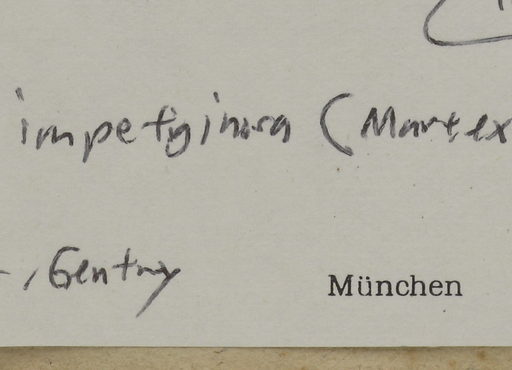 impetginosa (Mart. ex
, Gentry München